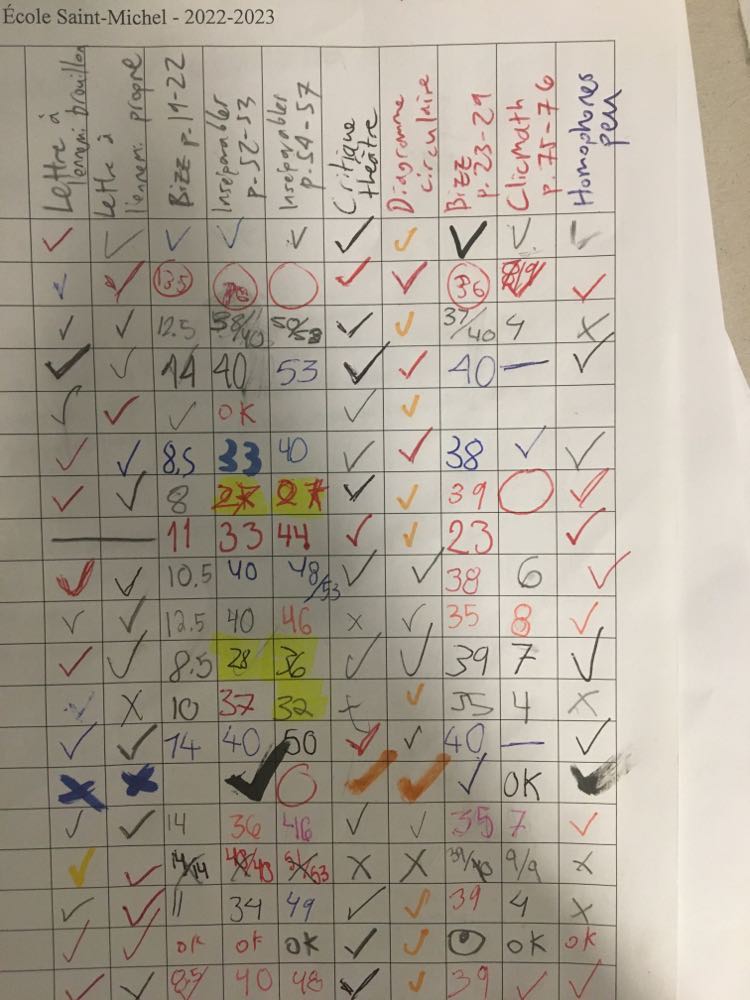 École Saint-Michel - 2022-2023
Lettre à l'ennemi brouillon
Lettre à l'ennemi propre
Bizz p. 19-22
Inséparables p. 52-53
Inséparables p. 54-57
Critique théâtre
Diagramme circulaire
Bizz p. 23-29
Clicmath p. 75-76
Homophones peu
✓ ✓ ✓ ✓ ✓ ✓ ✓ ✓ ✓ ✓
✓ ✓ 13.5 ✓ ✓ 36 ✓
✓ ✓ 12.5 38/40 50/53 ✓ ✓ 37/40 4 X
✓ ✓ 14 40 53 ✓ ✓ 40 — ✓
✓ ✓ ✓ OK ✓ ✓
✓ ✓ 8,5 33 40 ✓ ✓ 38 ✓ ✓
✓ ✓ 8 27 27 ✓ ✓ 39 ✓
— 11 33 44 ✓ ✓ 23 ✓
✓ ✓ 10.5 40 48/53 ✓ ✓ 38 6 ✓
✓ ✓ 12.5 40 46 x ✓ 35 8 ✓
✓ ✓ 8.5 28 36 ✓ ✓ 39 7 ✓
X 10 37 32 ✓ 35 4 X
✓ ✓ 14 40 50 ✓ ✓ 40 — ✓
X X ✓ ✓ ✓ ✓ OK ✓
✓ ✓ 14 36 46 ✓ ✓ 35 7 ✓
✓ ✓ 14/14 40/40 51/53 X X 39/40 9/9 X
✓ ✓ 11 34 49 ✓ ✓ 39 4 X
✓ ✓ OK OK OK ✓ ✓ OK OK
✓ ✓ 8,5 40 48 ✓ ✓ 39 ✓ ✓